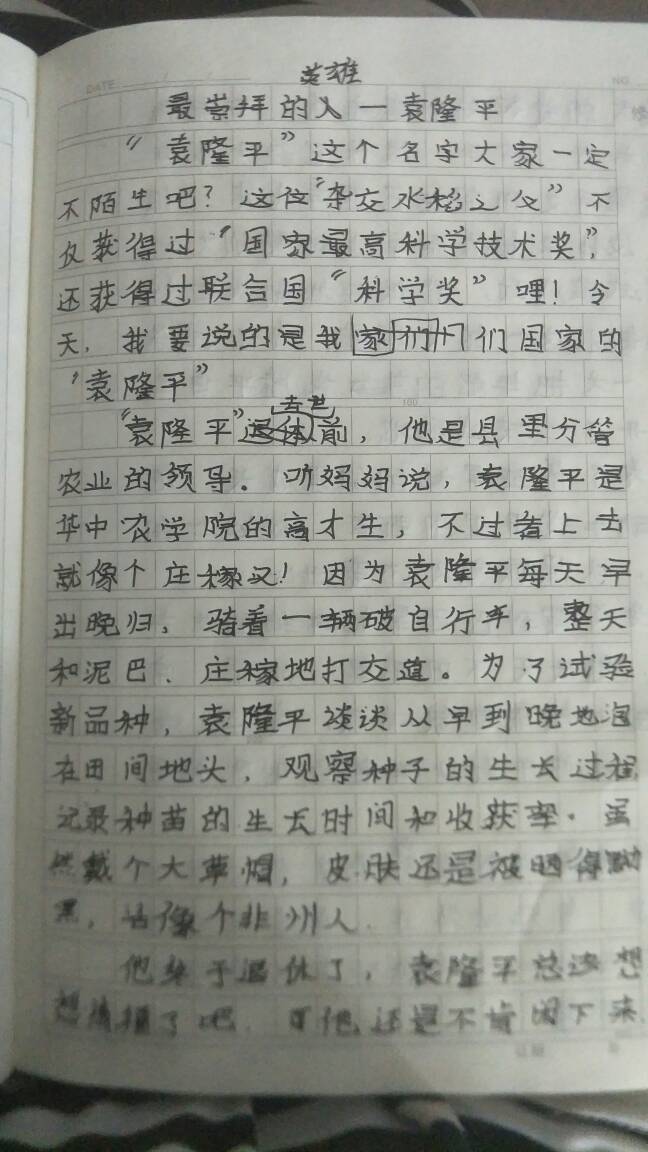 DATE
NO
英雄
最崇拜的人一袁隆平
“袁隆平”这个名字大家一定
不陌生吧?这位“杂交水稻之父”不
仅获得过“国家最高科学技术奖”,
还获得过联合国“科学奖”哩!今
天,我要说的是我家们们国家的
“袁隆平”
去世
100
“袁隆平”退休前,他是县里分管
农业的领导。听妈妈说,袁隆平是
华中农学院的高才生,不过看上去
就像个庄稼汉!因为袁隆平每天早
出晚归,骑着一辆破自行车,整天
和泥巴、庄稼地打交道。为了试验
新品种,袁隆平谈谈从早到晚地泡
在田间地头,观察种子的生长过程,
记录种苗的生长时间和收获率。虽
然戴个大草帽,皮肤还是被晒得黝
黑,占像个非州人.
他终于退休了,袁隆平总该想
想清福了吧.可他还是不肯闲下来.